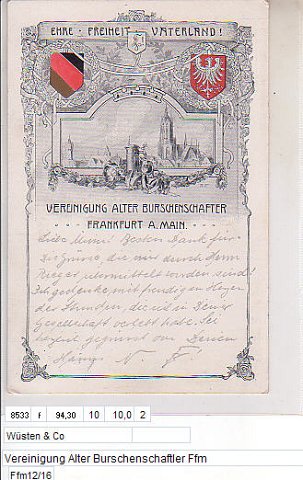 EHRE · FREIHEIT · VATERLAND!
VEREINIGUNG ALTER BURSCHENSCHAFTER
FRANKFURT A. MAIN.
Besten Dank für
die Grüße, die mir durch Herrn
übermittelt worden sind!
Ich gedenke mit freudigem Herzen
der Stunden, die ich in Deiner
verlebt habe. Sei
gegrüsst von Deinem
8533 f 94,30 10 10,0 2
Wüsten & Co
Vereinigung Alter Burschenschaftler Ffm
Ffm12/16